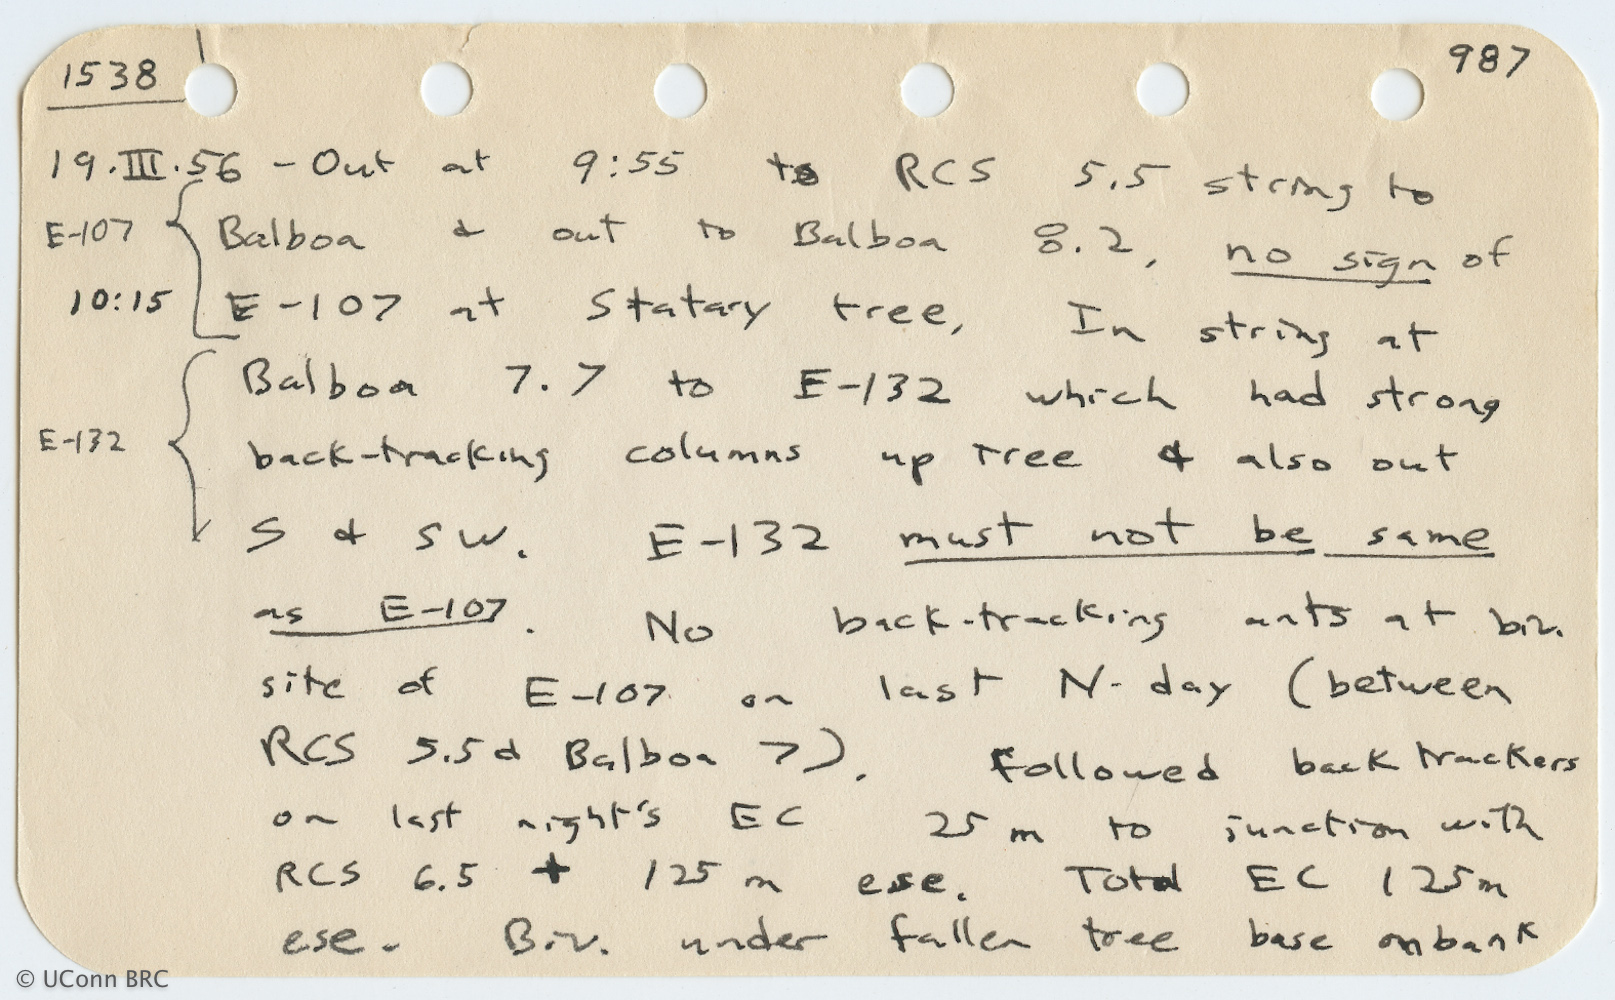 1538
987
19.III.56 - Out at 9:55 to RCS 5.5 string to
E-107 Balboa & out to Balboa 8.2, no sign of
10:15 E-107 at Statary tree, In string at
Balboa 7.7 to E-132 which had strong
E-132 back-tracking columns up tree & also out
S & SW. E-132 must not be same
as E-107. No back-tracking ants at biv.
site of E-107 on last N-day (between
RCS 5.5 & Balboa 7). Followed back trackers
on last night's EC 25 m to junction with
RCS 6.5 + 125 m ese. Total EC 125m
ese. Biv. under fallen tree base on bank
© UConn BRC